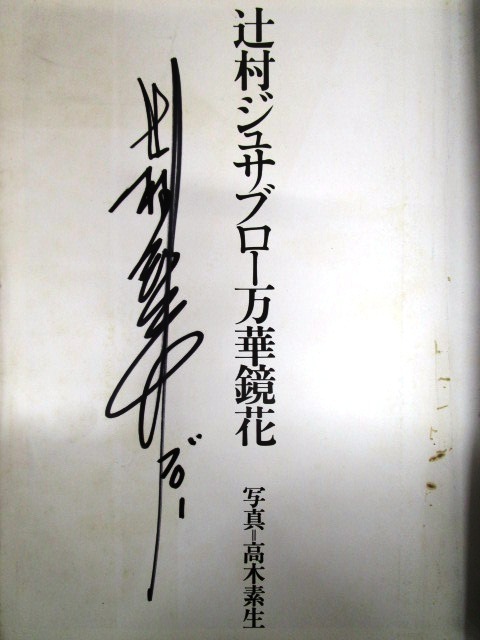 辻村ジュサブロー万華鏡花
写真=高木素生
辻村
ブロー